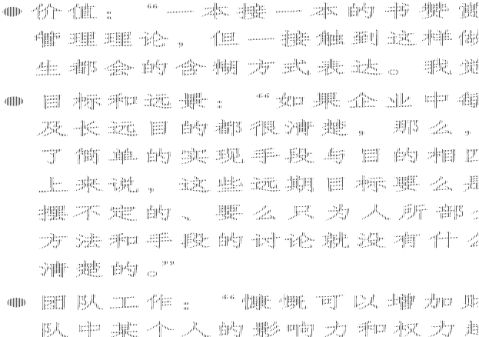 ● 价值：“一本接一本的书赞
管理理论，但一接触到这样
生都会的含糊方式表达。我
● 目标和远景：“如果企业中每
及长远目的都很清楚，那么，
了简单的实现手段与目的相
上来说，这些远期目标要么是
摆不定的、要么只为人所部
方法和手段的讨论就没有什么
清楚的。”
● 团队工作：“慷慨可以增加
队中某个人的影响力和权力